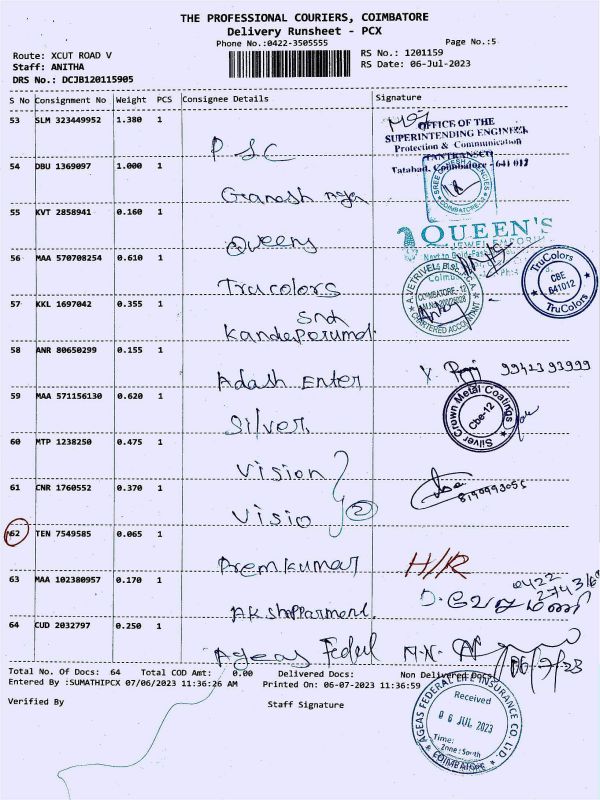 THE PROFESSIONAL COURIERS, COIMBATORE
Delivery Runsheet - PCX
Phone No.:0422-3505555
Page No.:5
Route: XCUT ROAD V
RS No.: 1201159
Staff: ANITHA
RS Date: 06-Jul-2023
DRS No.: DCJB120115905
S No Consignment No Weight PCS Consignee Details Signature
53 SLM 323449952 1.380 1
OFFICE OF THE
SUPERINTENDING ENGINEER
Protection & Communication
TANTRANSCO
Tatabad, Coimbatore - 641 012
P S C
54 DBU 1369097 1.000 1
Ganesh
55 KVT 2858941 0.160 1
Queens
QUEEN'S
JEWEL EMPORIUM
56 MAA 570708254 0.610 1
Trucolors
TruColors
CBE
641012
TruColors
57 KKL 1697042 0.355 1
COIMBATORE - 12
CHARTERED ACCOUNTANT
Snd
Kandaparumal
58 ANR 80650299 0.155 1
Adash Enter
9942393999
59 MAA 571156130 0.620 1
Silver
Silver Crown Metal Coatings
Cbe-12
60 MTP 1238250 0.475 1
Vision
61 CNR 1760552 0.370 1
Visio
2
8190993055
62 TEN 7549585 0.065 1
Premkumar
H/R
0422
63 MAA 102380957 0.170 1
64 CUD 2032797 0.250 1
Ageas Fedral
06/7/23
Total No. Of Docs: 64 Total COD Amt: 0.00 Delivered Docs: Non Delivered Docs:
Entered By :SUMATHIPCX 07/06/2023 11:36:26 AM Printed On: 06-07-2023 11:36:59
Verified By Staff Signature
AGEAS FEDERAL LIFE INSURANCE CO. LTD
Received
06 JUL 2023
Time:
Zone: South
COIMBATORE